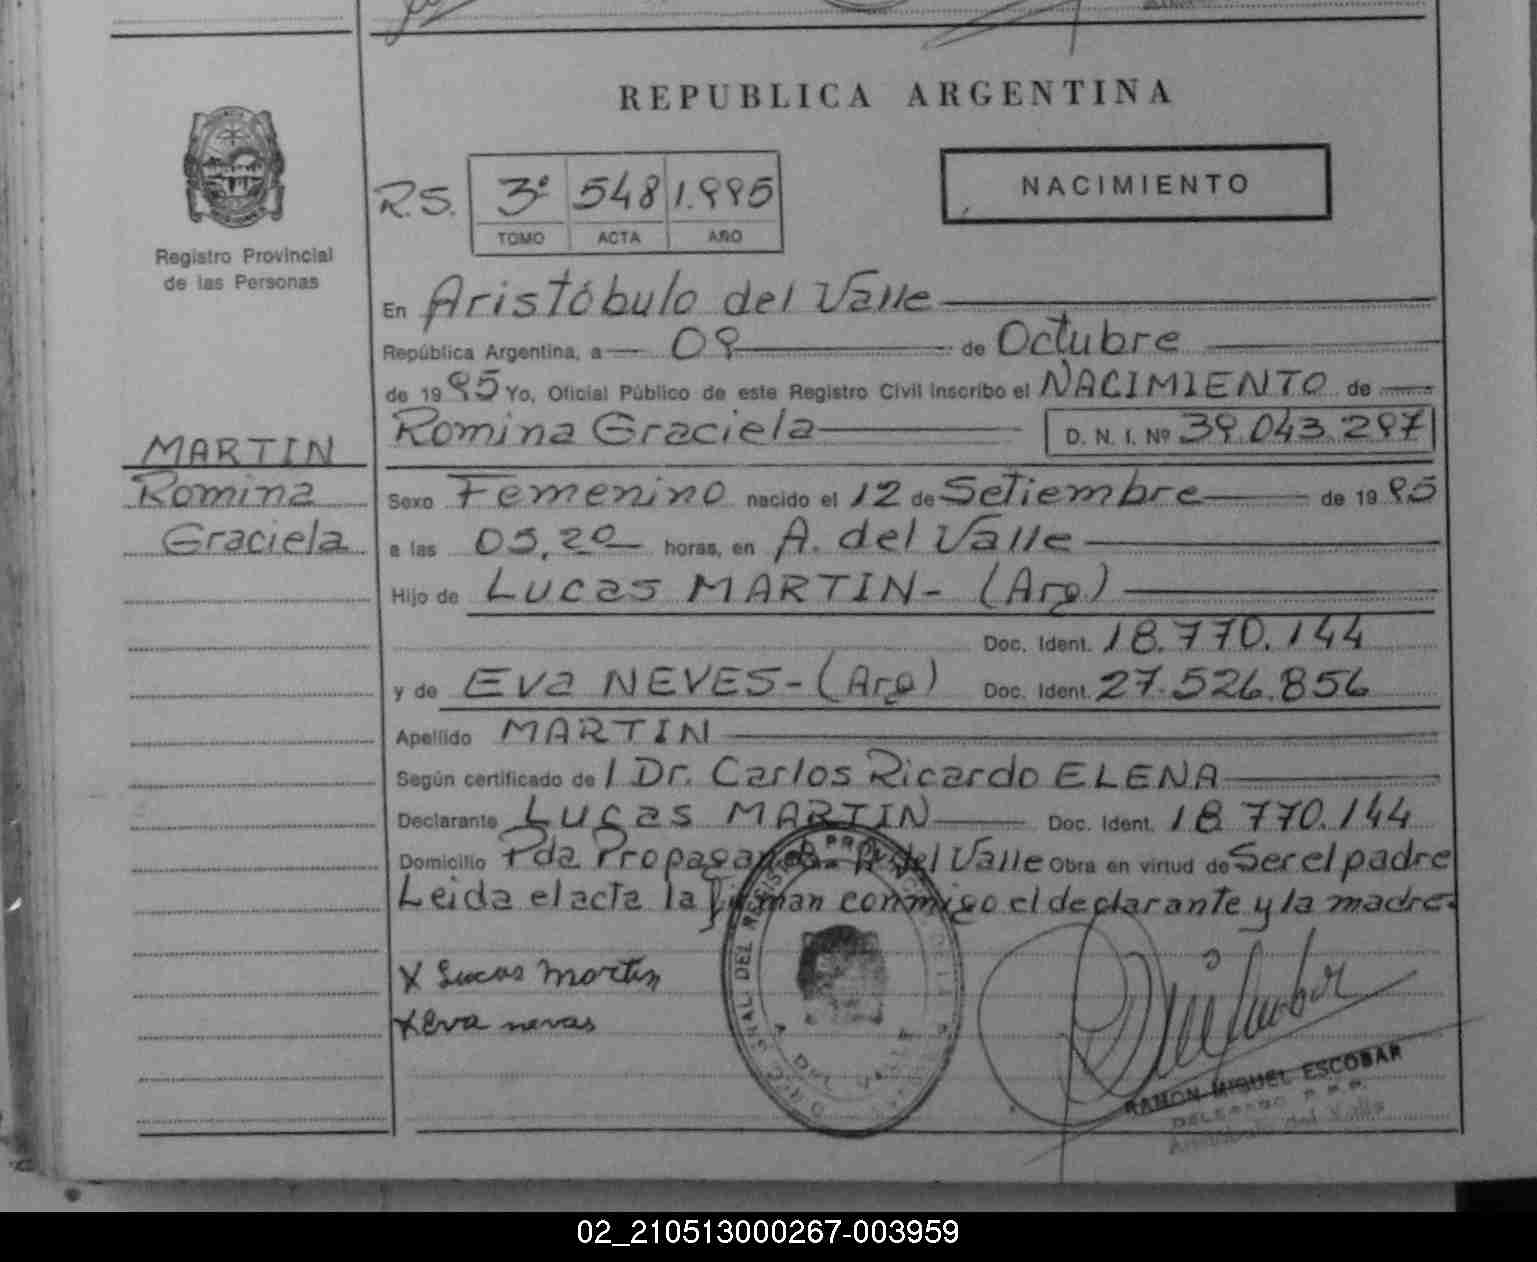 REPUBLICA ARGENTINA
Registro Provincial
de las Personas
R.S. 3º 548 1.995
TOMO ACTA AÑO
NACIMIENTO
En Aristóbulo del Valle
República Argentina, a 09 de Octubre
de 1995 Yo, Oficial Público de este Registro Civil inscribo el NACIMIENTO de
Romina Graciela D. N. I. Nº 39.043.297
MARTIN
Romina
Graciela
Sexo Femenino nacido el 12 de Setiembre de 1995
a las 05,20 horas, en A. del Valle
Hijo de LUCAS MARTIN- (Arg)
Doc. Ident. 18.770.144
y de EVA NEVES- (Arg) Doc. Ident. 27.526.856
Apellido MARTIN
Según certificado de l Dr. Carlos Ricardo ELENA
Declarante LUCAS MARTIN Doc. Ident. 18 770.144
Domicilio Pda Propaganda- A. del Valle Obra en virtud de Ser el padre
Leida el acta la firman conmigo el declarante y la madre.
X Lucas Martin
X Eva nevas
A. DEL VALLE
RAMON MIGUEL ESCOBAR
DELEGADO R.P.P.
Aristóbulo del Valle
02_210513000267-003959